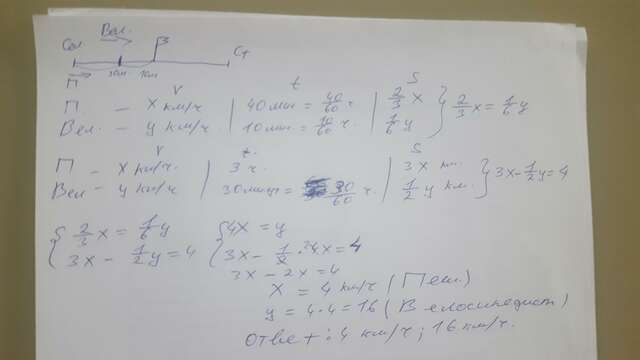 Вел.
Сел. Ст
30мин 10мин
П
V t S
П — x км/ч | 40 мин = 40/60 ч. | 2/3 x } 2/3 x = 1/6 y
Вел. — y км/ч | 10 мин = 10/60 ч. | 1/6 y
V t. S
П — x км/ч. | 3 ч. | 3x км. } 3x - 1/2 y = 4
Вел — y км/ч | 30 мин = 30/60 ч. | 1/2 y км.
{ 2/3 x = 1/6 y { 4x = y
3x - 1/2 y = 4 3x - 1/2 · 4x = 4
3x - 2x = 4
x = 4 км/ч (Пеш.)
y = 4·4 = 16 (Велосипедист)
Ответ: 4 км/ч; 16 км/ч.